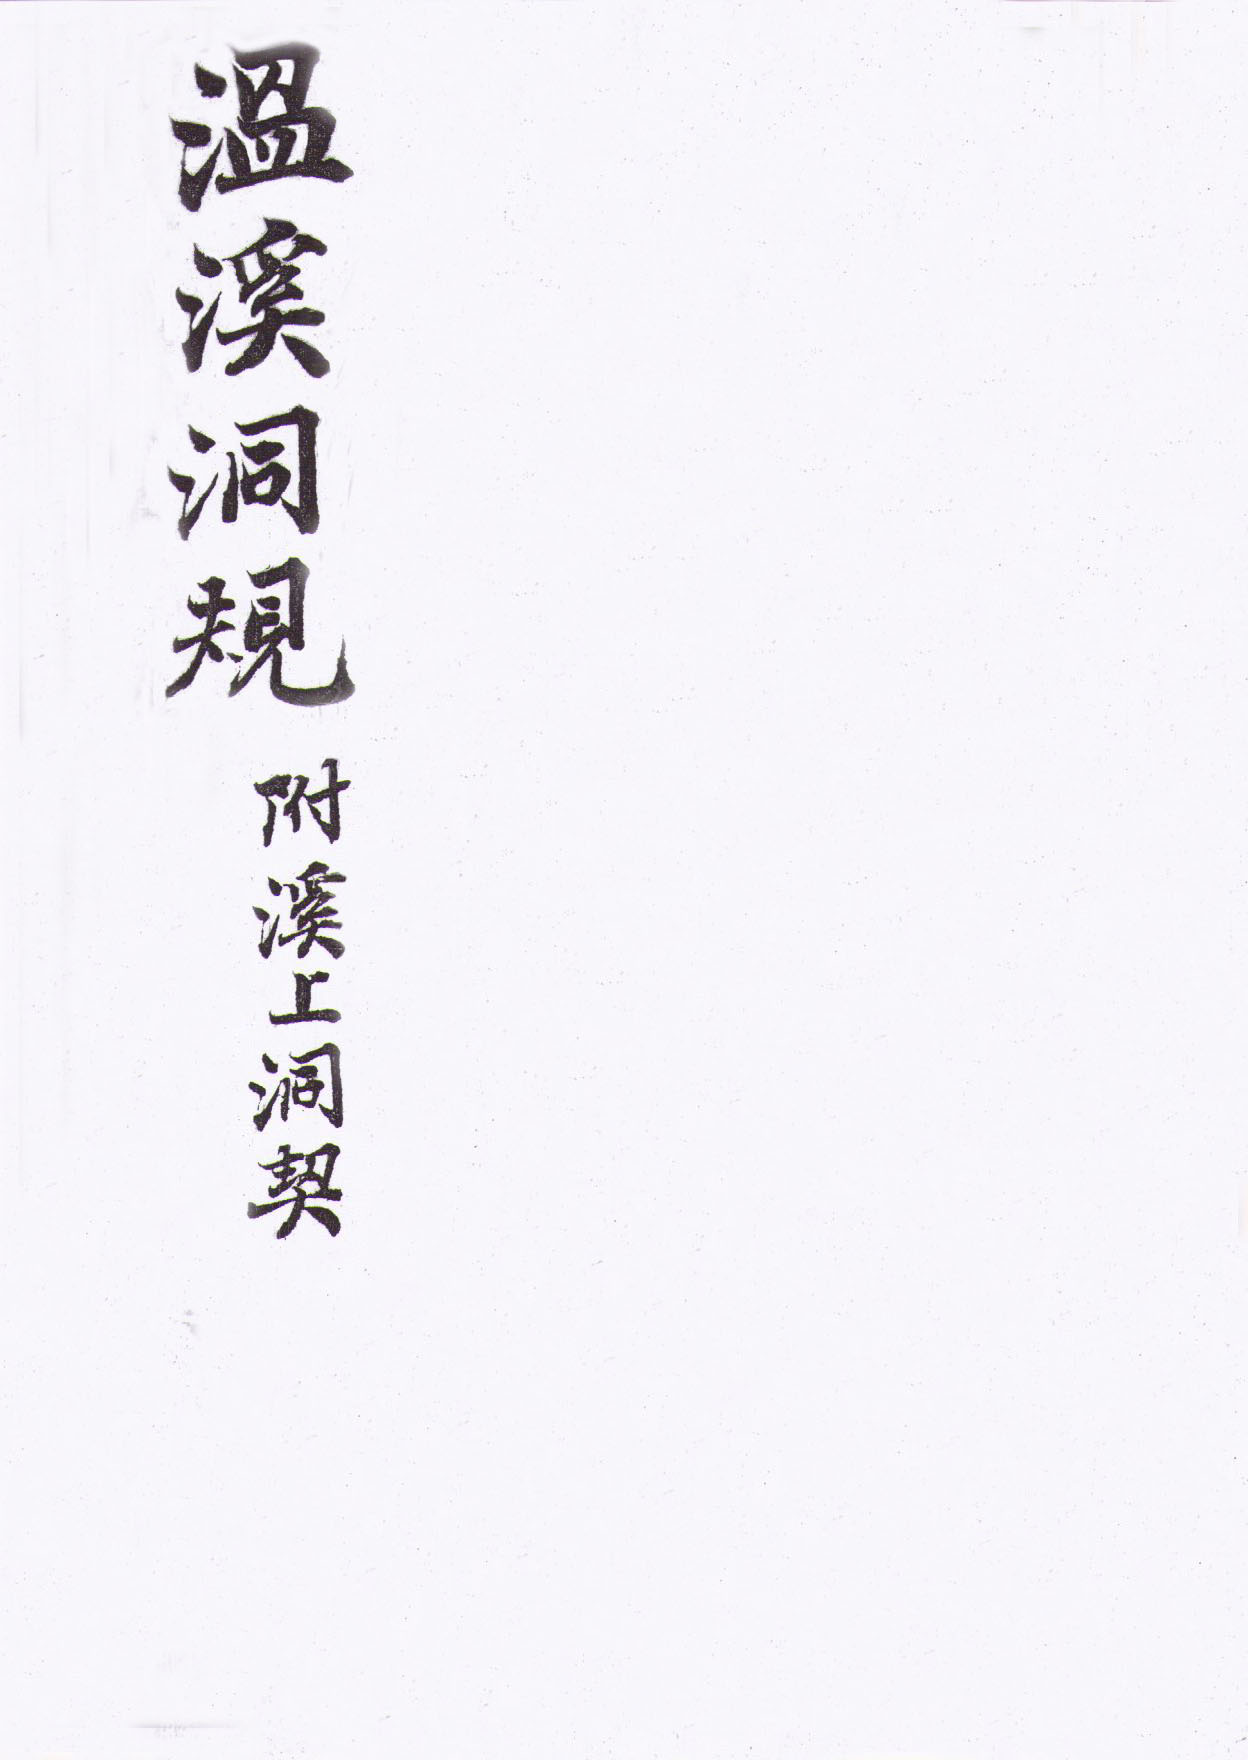 溫溪洞規
附溪上洞契